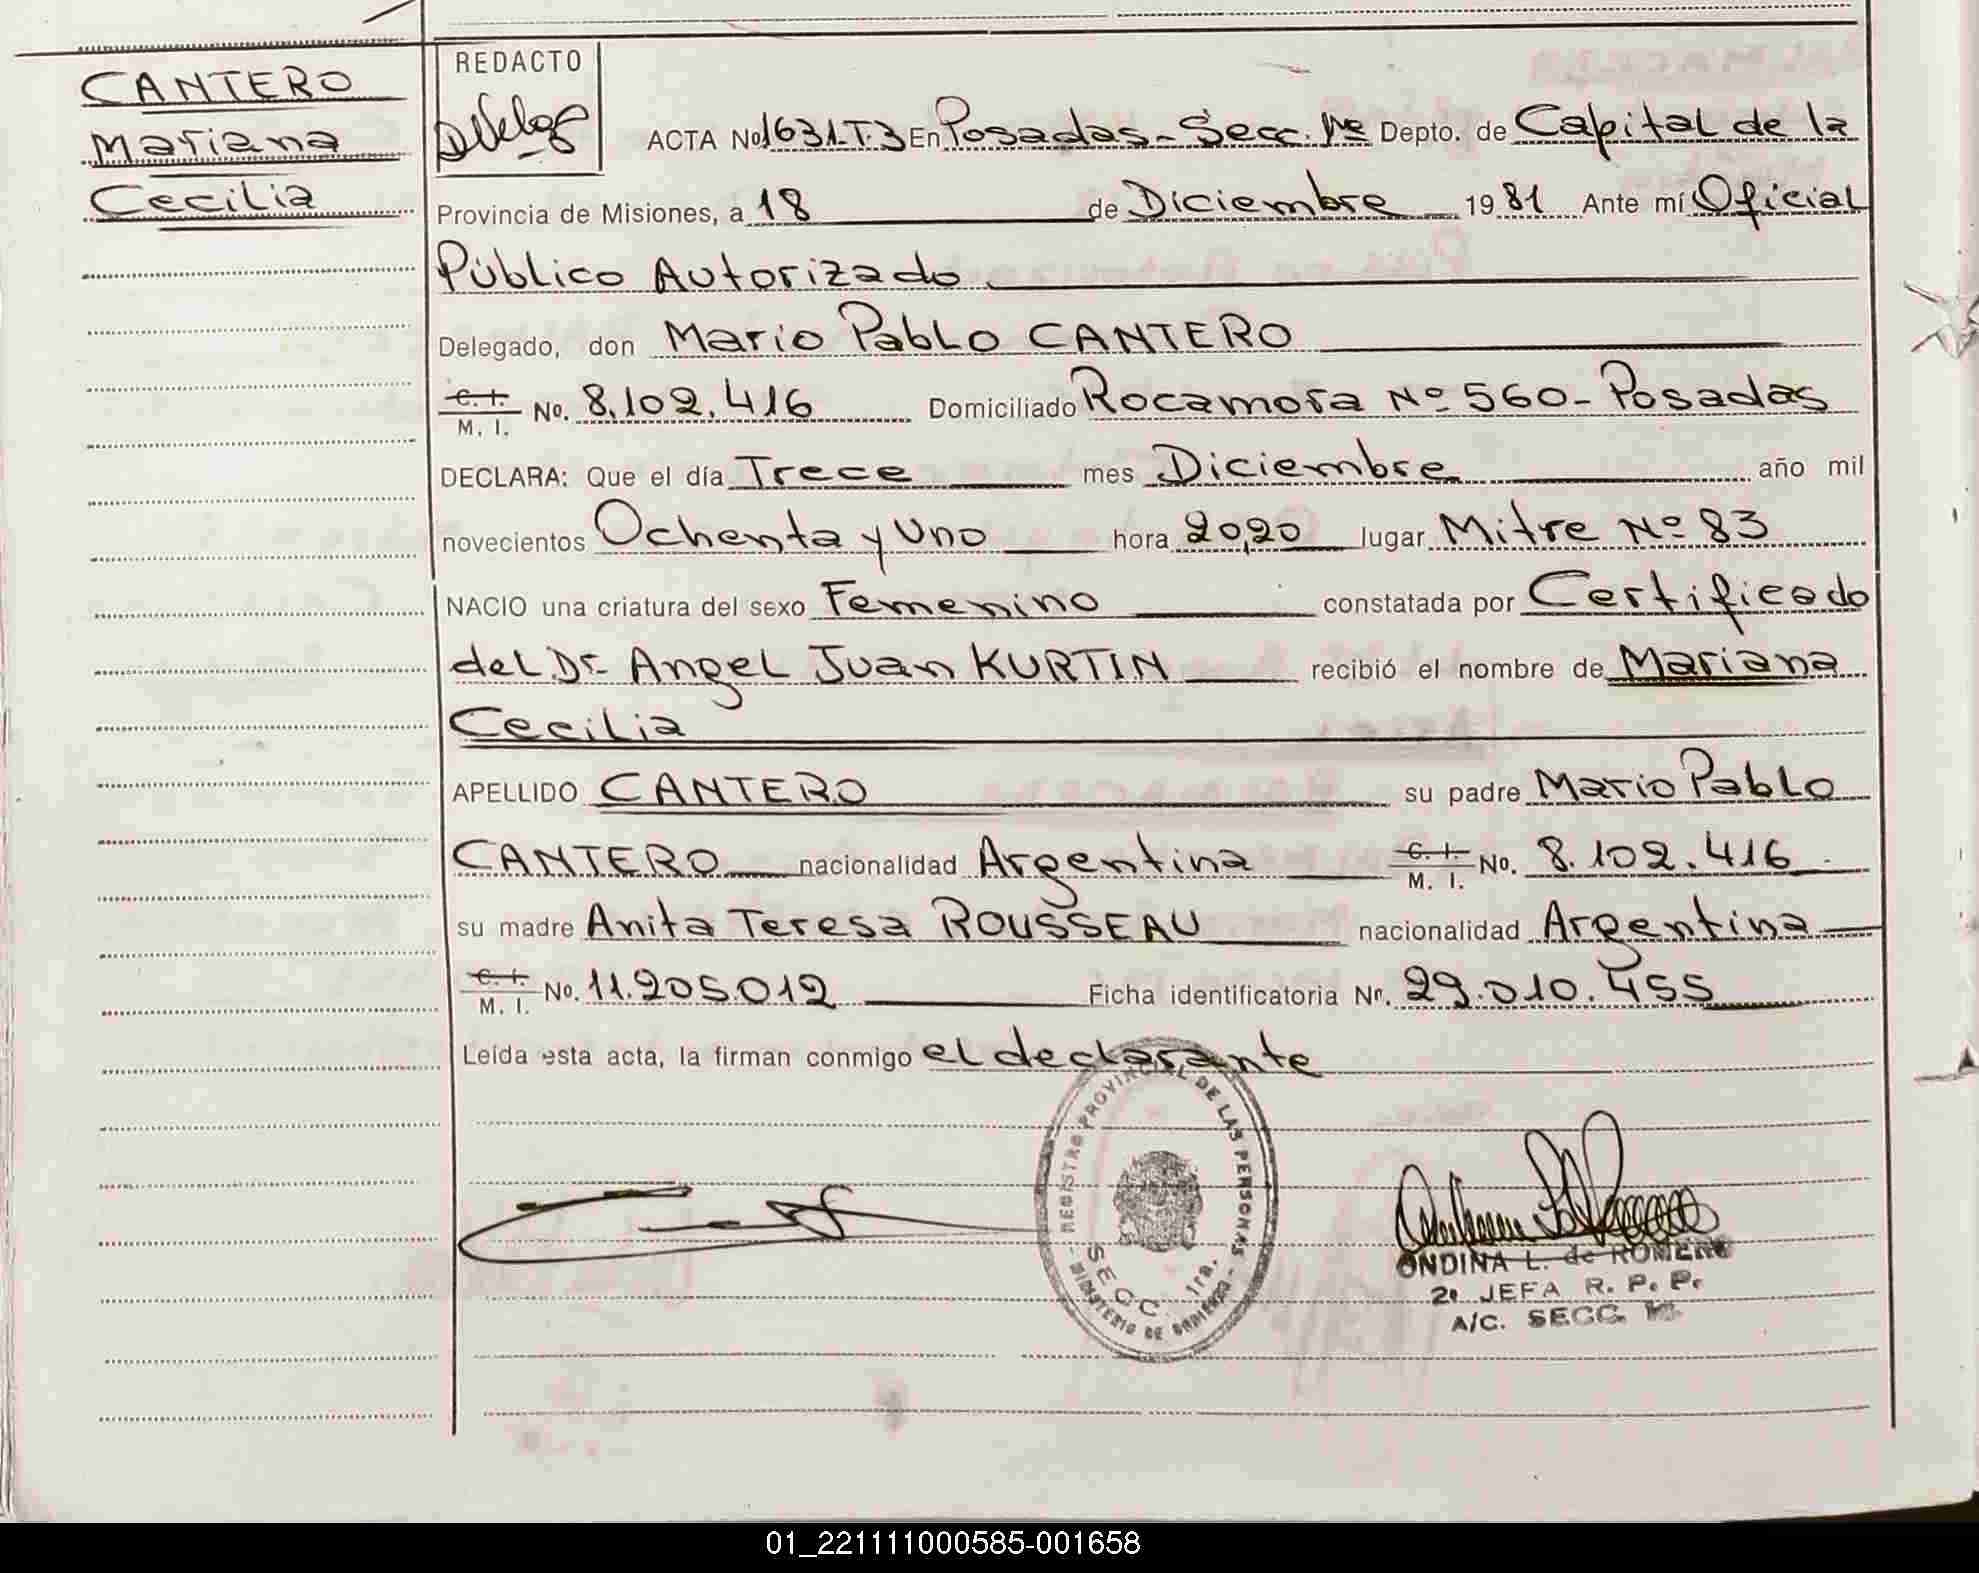 CANTERO
Mariana
Cecilia
REDACTO
ACTA No 1631.T.3 En Posadas - Secc. 1ra Depto. de Capital de la
Provincia de Misiones, a 18 de Diciembre 1981 Ante mí Oficial
Público Autorizado
Delegado, don Mario Pablo CANTERO
C. I. / M. I. No. 8.102.416 Domiciliado Rocamora Nº 560 - Posadas
DECLARA: Que el día Trece mes Diciembre año mil
novecientos Ochenta y Uno hora 20,20 lugar Mitre Nº 83
NACIO una criatura del sexo Femenino constatada por Certificado
del Dr. Angel Juan KURTIN recibió el nombre de Mariana
Cecilia
APELLIDO CANTERO su padre Mario Pablo
CANTERO nacionalidad Argentina C. I. / M. I. No. 8.102.416
su madre Anita Teresa ROUSSEAU nacionalidad Argentina
C. I. / M. I. No. 11.205.012 Ficha identificatoria Nr. 29.010.455
Leída esta acta, la firman conmigo el declarante
- REGISTRO PROVINCIAL DE LAS PERSONAS -
MINISTERIO DE GOBIERNO
SECC. 1ra.
ONDINA L. de ROMERO
2a JEFA R. P. P.
A/C. SECC.
01_221111000585-001658